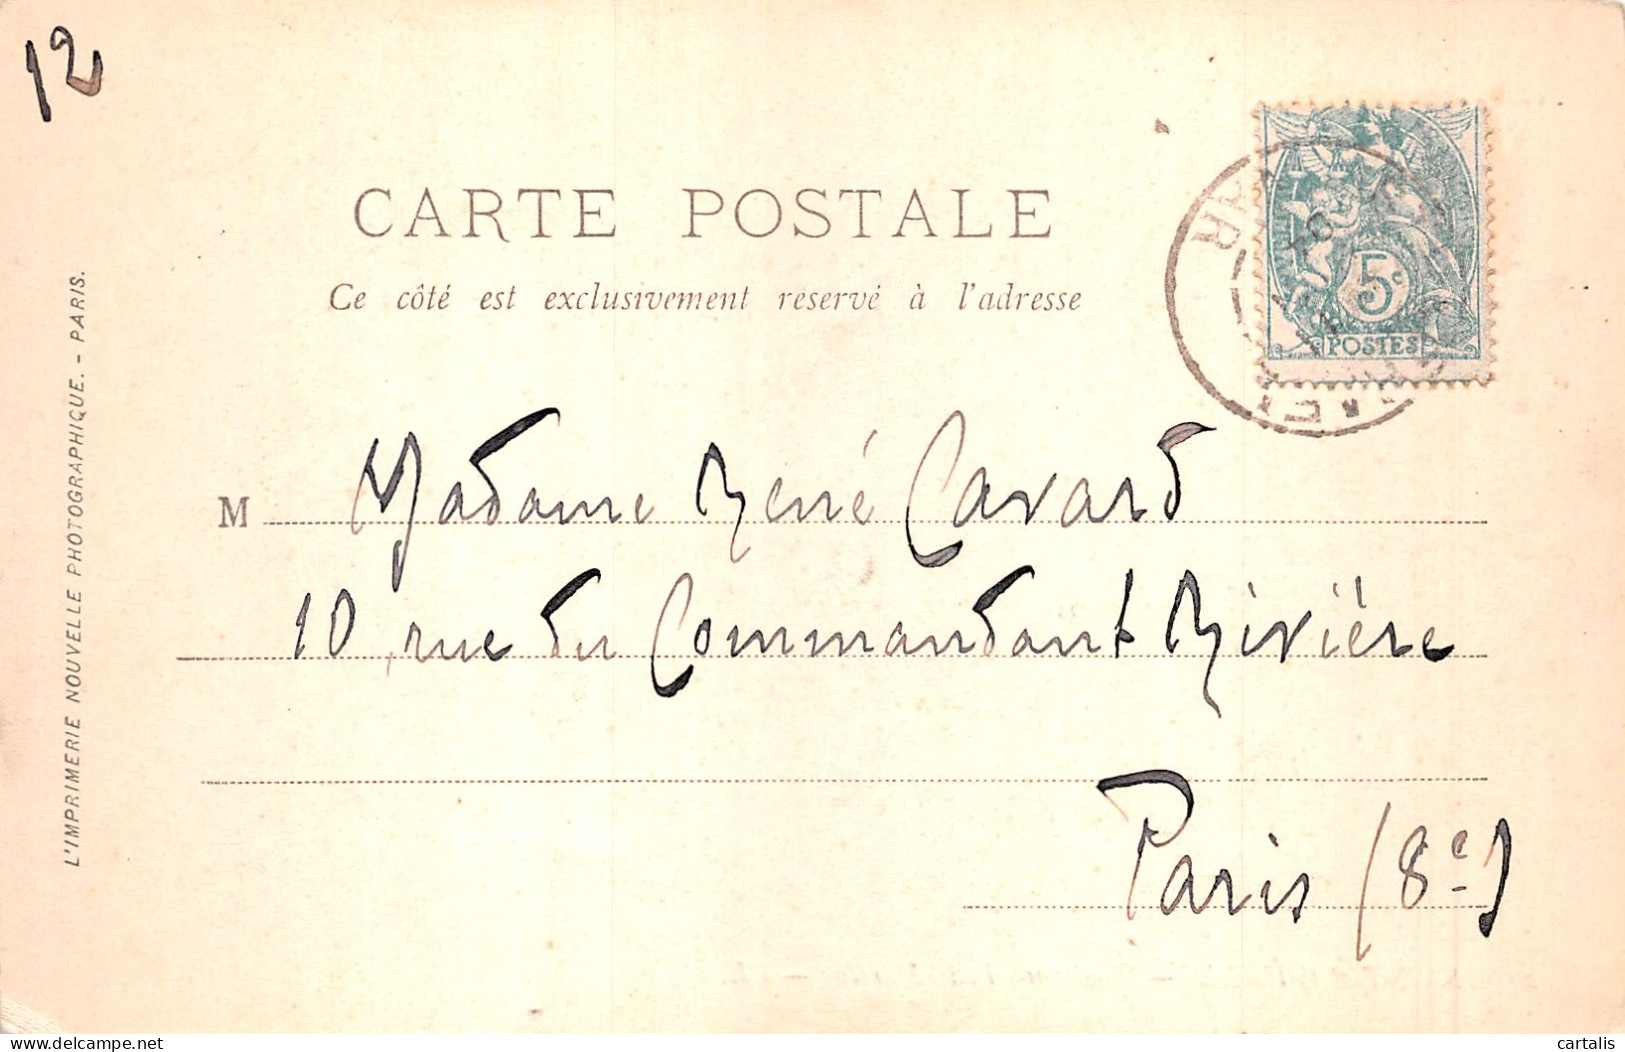 12
CARTE POSTALE
Ce côté est exclusivement reservé à l'adresse
5c
POSTES
M Madame René Cavard
10, rue du Commandant Rivière
Paris (8e)
L'IMPRIMERIE NOUVELLE PHOTOGRAPHIQUE. - PARIS.
www.delcampe.net
cartalis